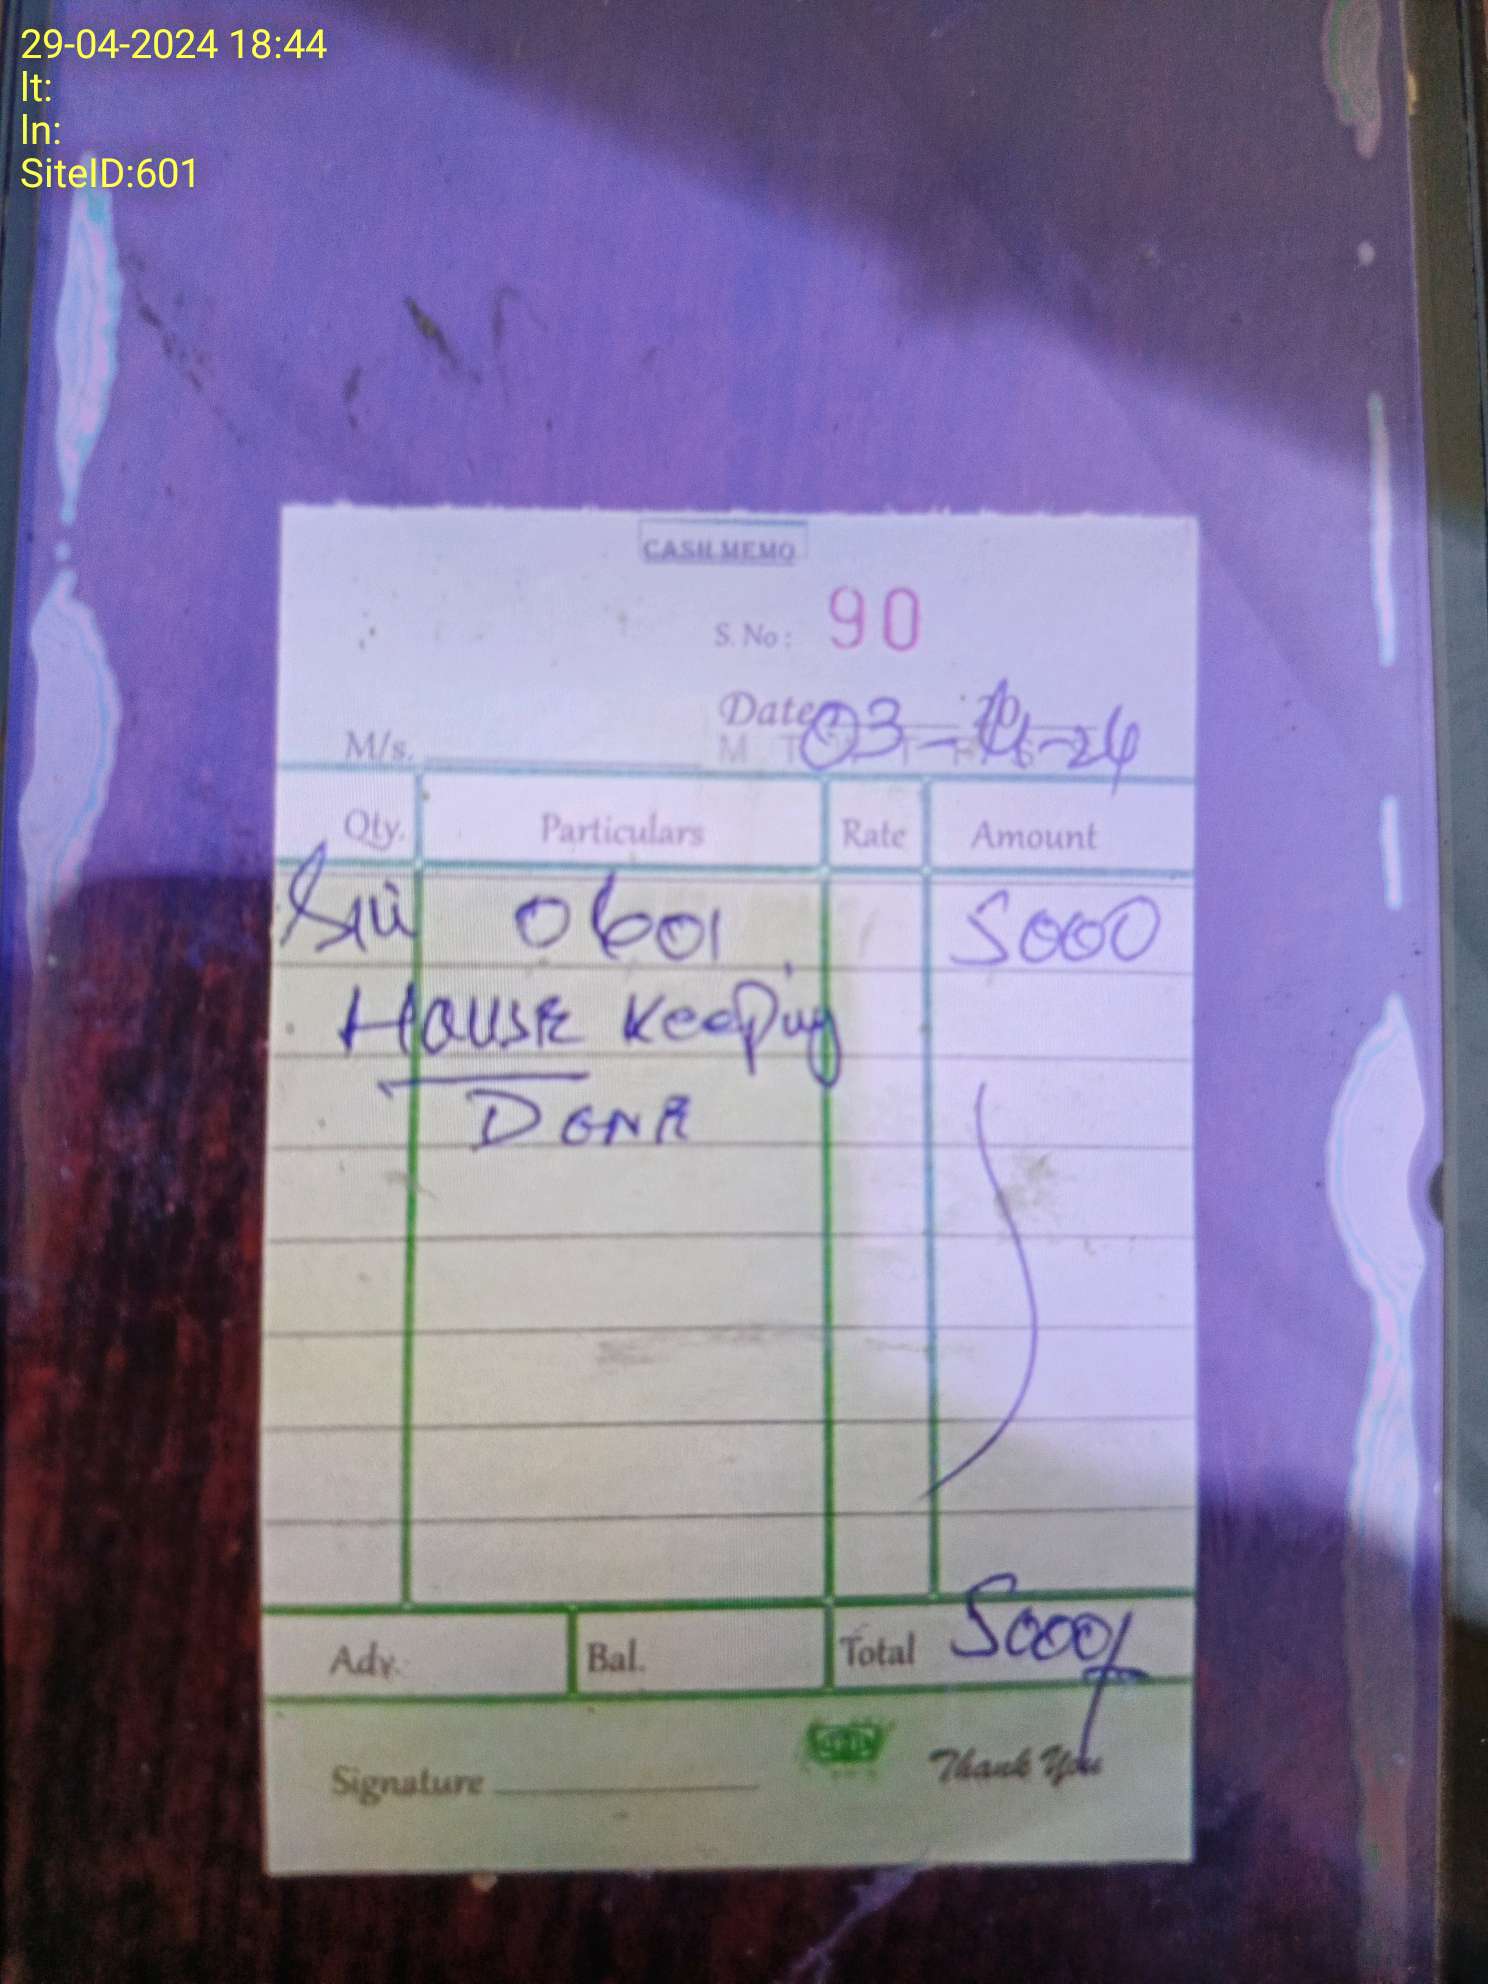 29-04-2024 18:44
lt:
ln:
SiteID:601
CASH MEMO
S. No: 90
Date 03- -24
M/s.
Qty. Particulars Rate Amount
0601 5000
HOUSE Keeping
DONE
Adv. Bal. Total 5000/
Signature
Thank You